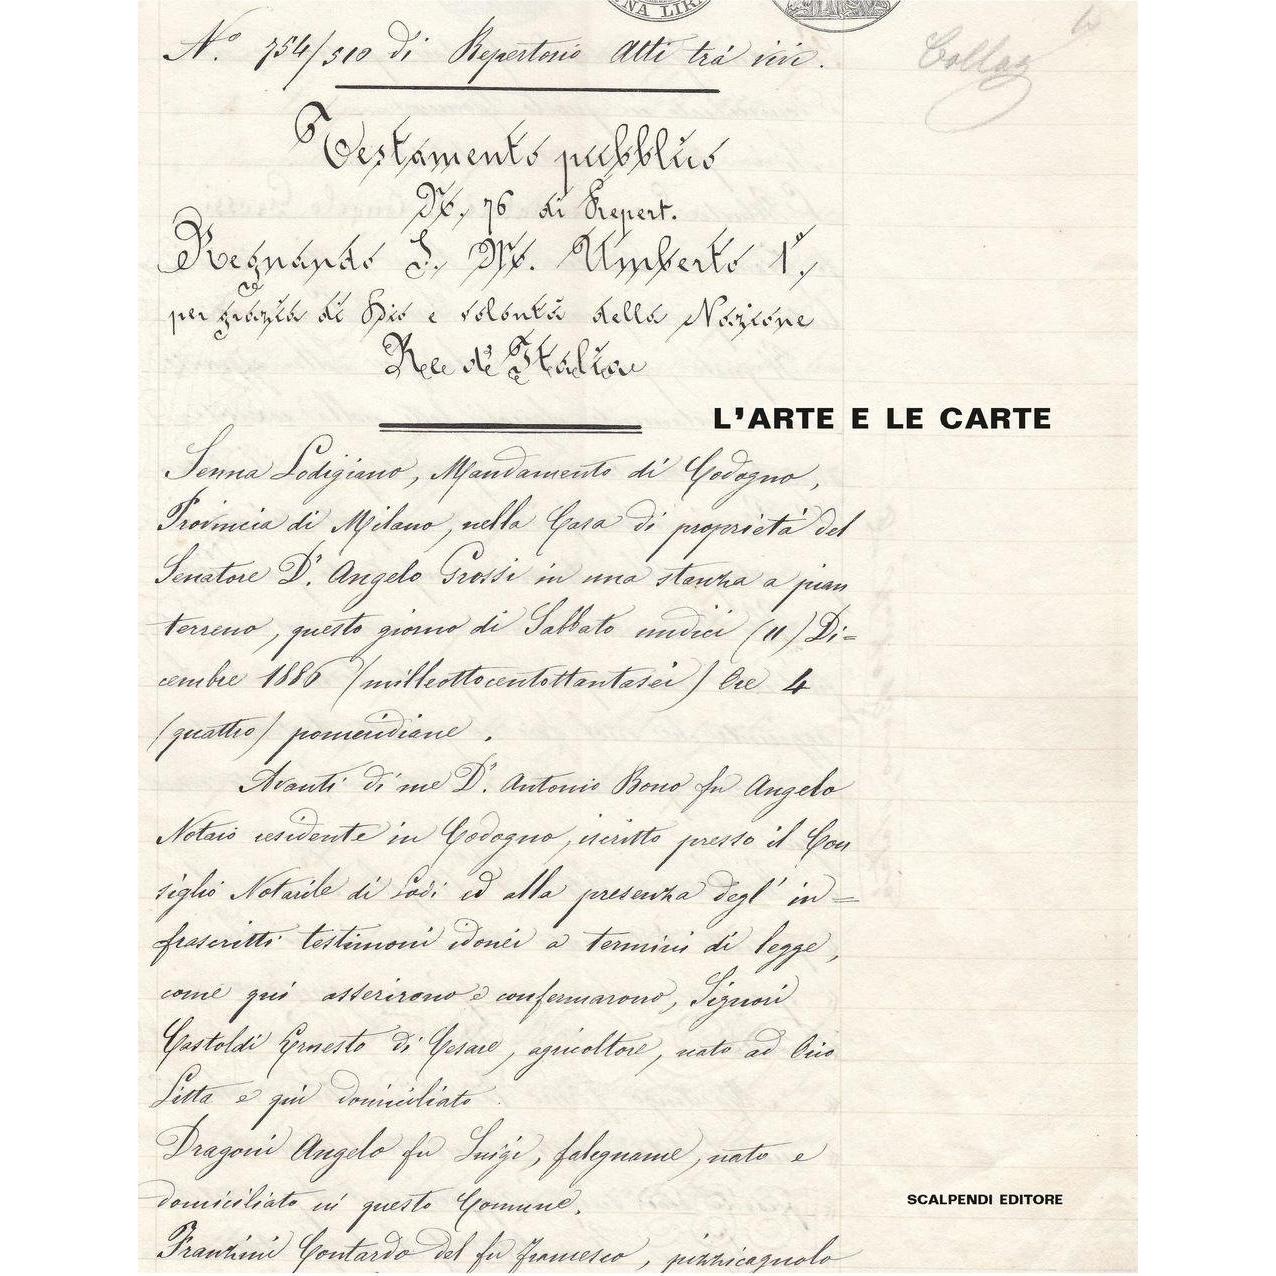 NA LIR
N.º 754/510 di Repertorio Atti trà vivi.
Testamento pubblico
N. 76 di Repert.
Regnando S. M. Umberto 1º,
per grazia di Dio e volontà della Nazione
Re d'Italia
L'ARTE E LE CARTE
Senna Lodigiano, Mandamento di Codogno,
Provincia di Milano, nella Casa di proprietà del
Senatore Dr. Angelo Grossi in una stanza a pian
terreno, questo giorno di Sabbato undici (11) Di=
cembre 1886 (milleottocentottantasei) Ore 4
(quattro) pomeridiane.
Avanti di me Dr. Antonio Bono fu Angelo
Notaio residente in Codogno, iscritto presso il Con
siglio Notarile di Lodi ed alla presenza degl' in=
frascritti testimoni idonei a termini di legge,
come qui asserirono e confermarono, Signori
Castoldi Ernesto di Cesare, agricoltore, nato ad Orio
Litta e qui domiciliato.
Dragoni Angelo fu Luigi, falegname, nato e
domiciliato in questo Comune.
SCALPENDI EDITORE
Franzini Contardo del fu Francesco, pizzicagnolo